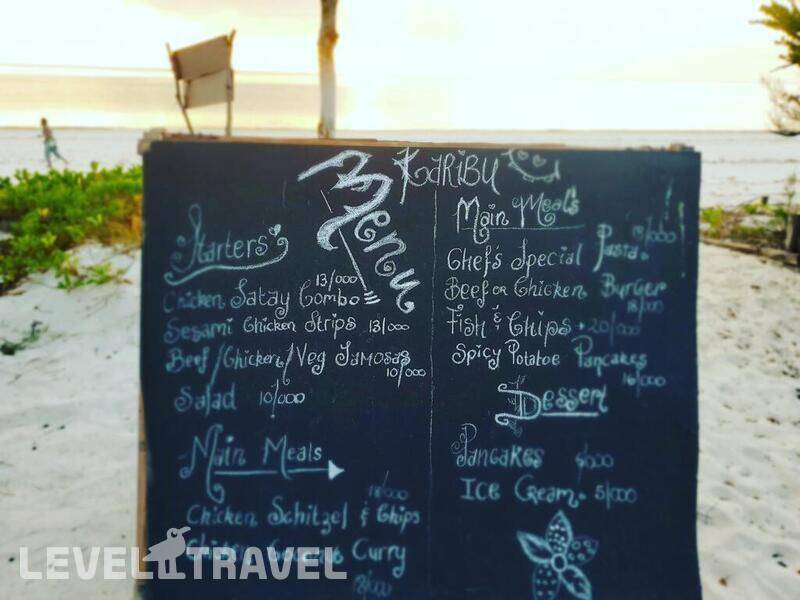 KARIBU
Menu
Starters
13/000
Chicken Satay Combo
Sesami Chicken Strips 13/000
Beef/Chicken/Veg Samosas
10/000
Salad 10/000
Main Meals
Chicken Schitzel & Chips
Curry
Main Meals
Chefs Special Pasta
Beef or Chicken Burger
Fish & Chips 20/000
Spicy Potatoe Pancakes
16/000
Dessert
Pancakes
Ice Cream 5/000
LEVEL TRAVEL